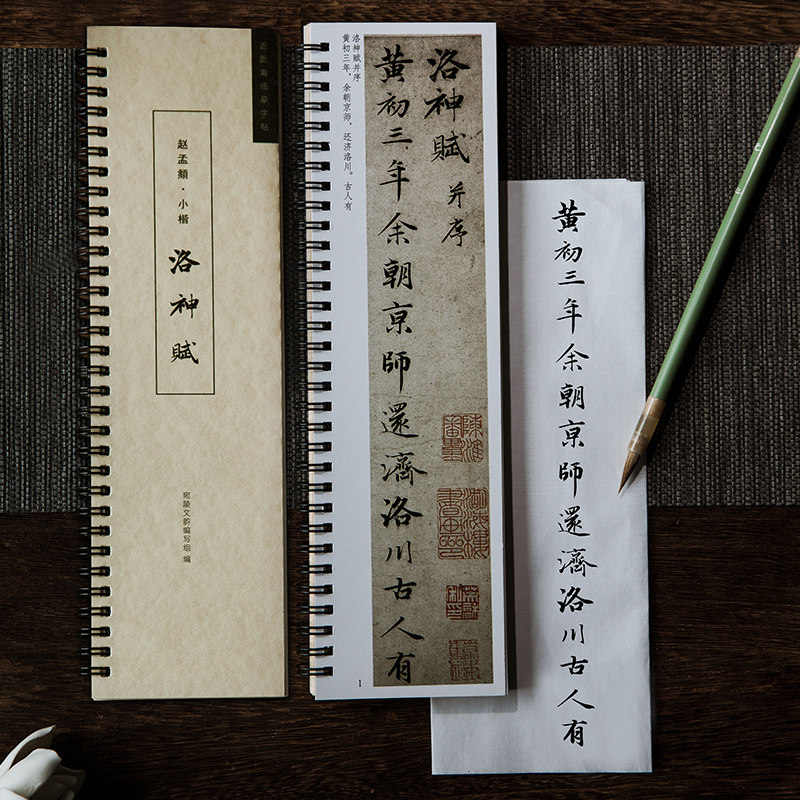 近距离临摹字帖
赵孟頫·小楷
洛神赋
宛陵文韵编写组 编
洛神赋并序
黄初三年，余朝京师，还济洛川。古人有
洛神賦并序
黄初三年余朝京師還濟洛川古人有
1
黄初三年余朝京師還濟洛川古人有